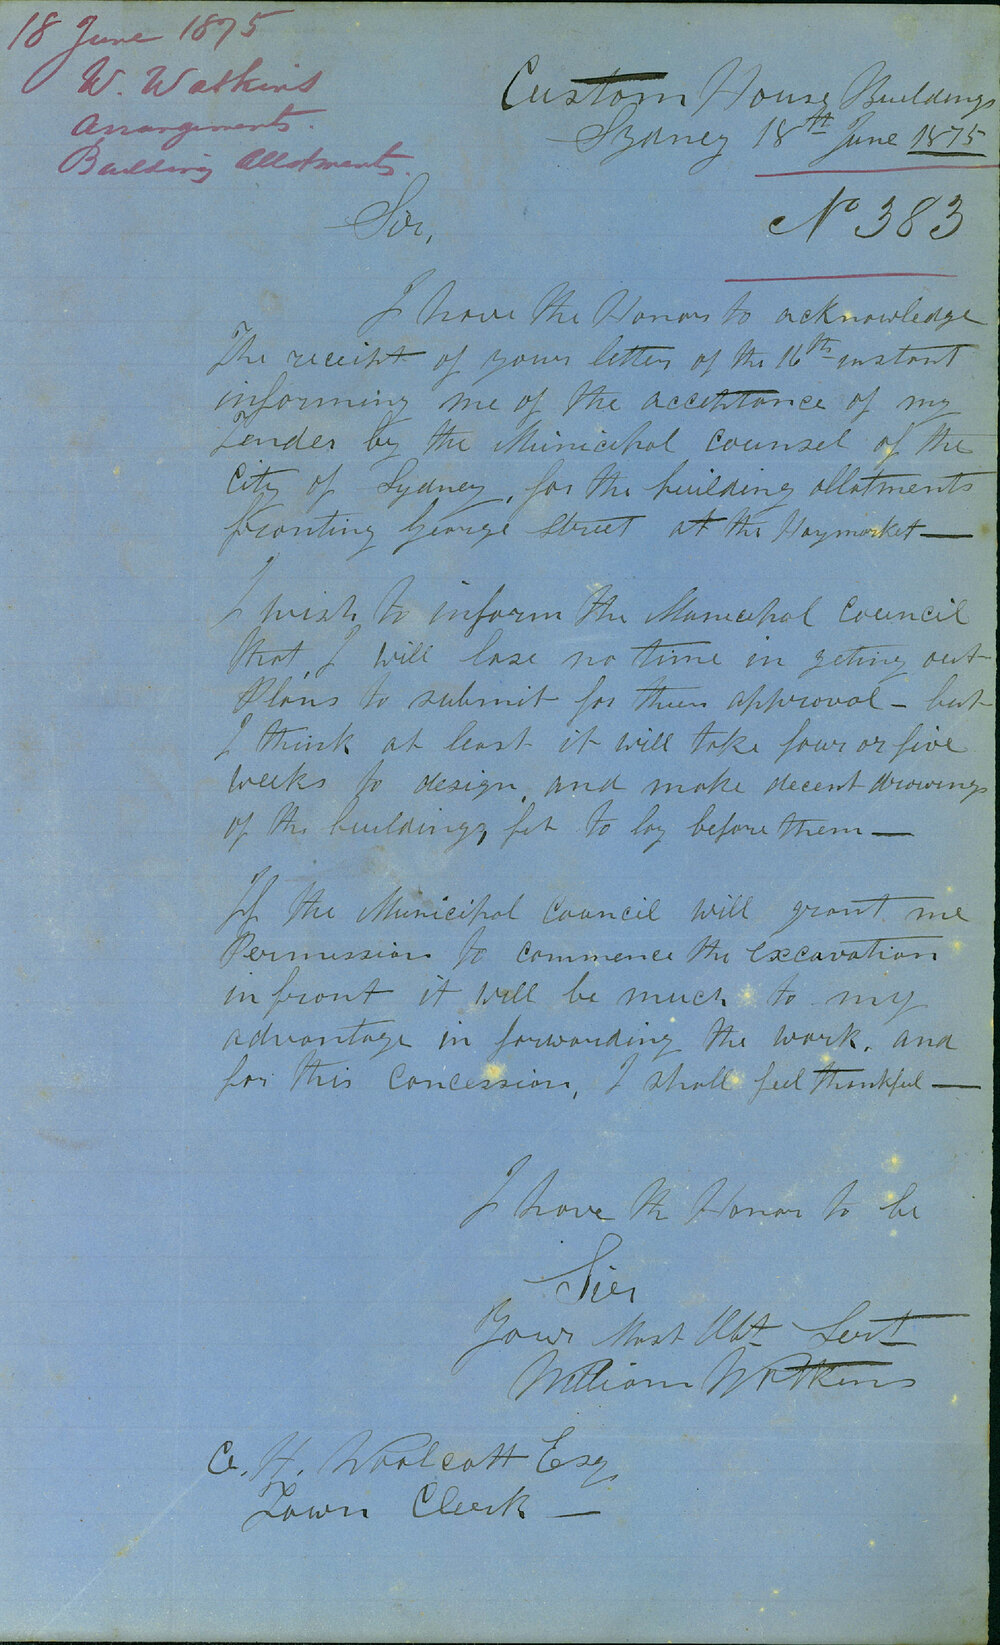 18 June 1875
W. Watkins
Arrangements.
Building Allotments.
Custom House Buildings
Sydney 18th June 1875
No 383
Sir,
I have the Honor to acknowledge
The receipt of your letter of the 16th instant
informing me of the acceptance of my
Tender by the Municipal Counsel of the
City of Sydney, for the building allotments
fronting George Street at the Haymarket —
I wish to inform the Municipal Council
that I will lose no time in geting out
Plans to submit for their approval – but
I think at least it will take four or five
weeks to design, and make decent drawings
of the buildings, fit to lay before them —
If the Municipal Council will grant me
Permission to commence the excavation
in front it will be much to my
advantage in forwarding the work. and
for this Concession, I shall feel thankful —
I have the Honor to be
Sir
Your Most Obt Servt
William Watkins
C. H. Woolcott Esq
Town Clerk —